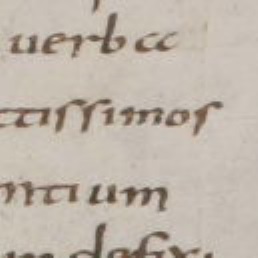 uerba
tissimos
ntium
defixi